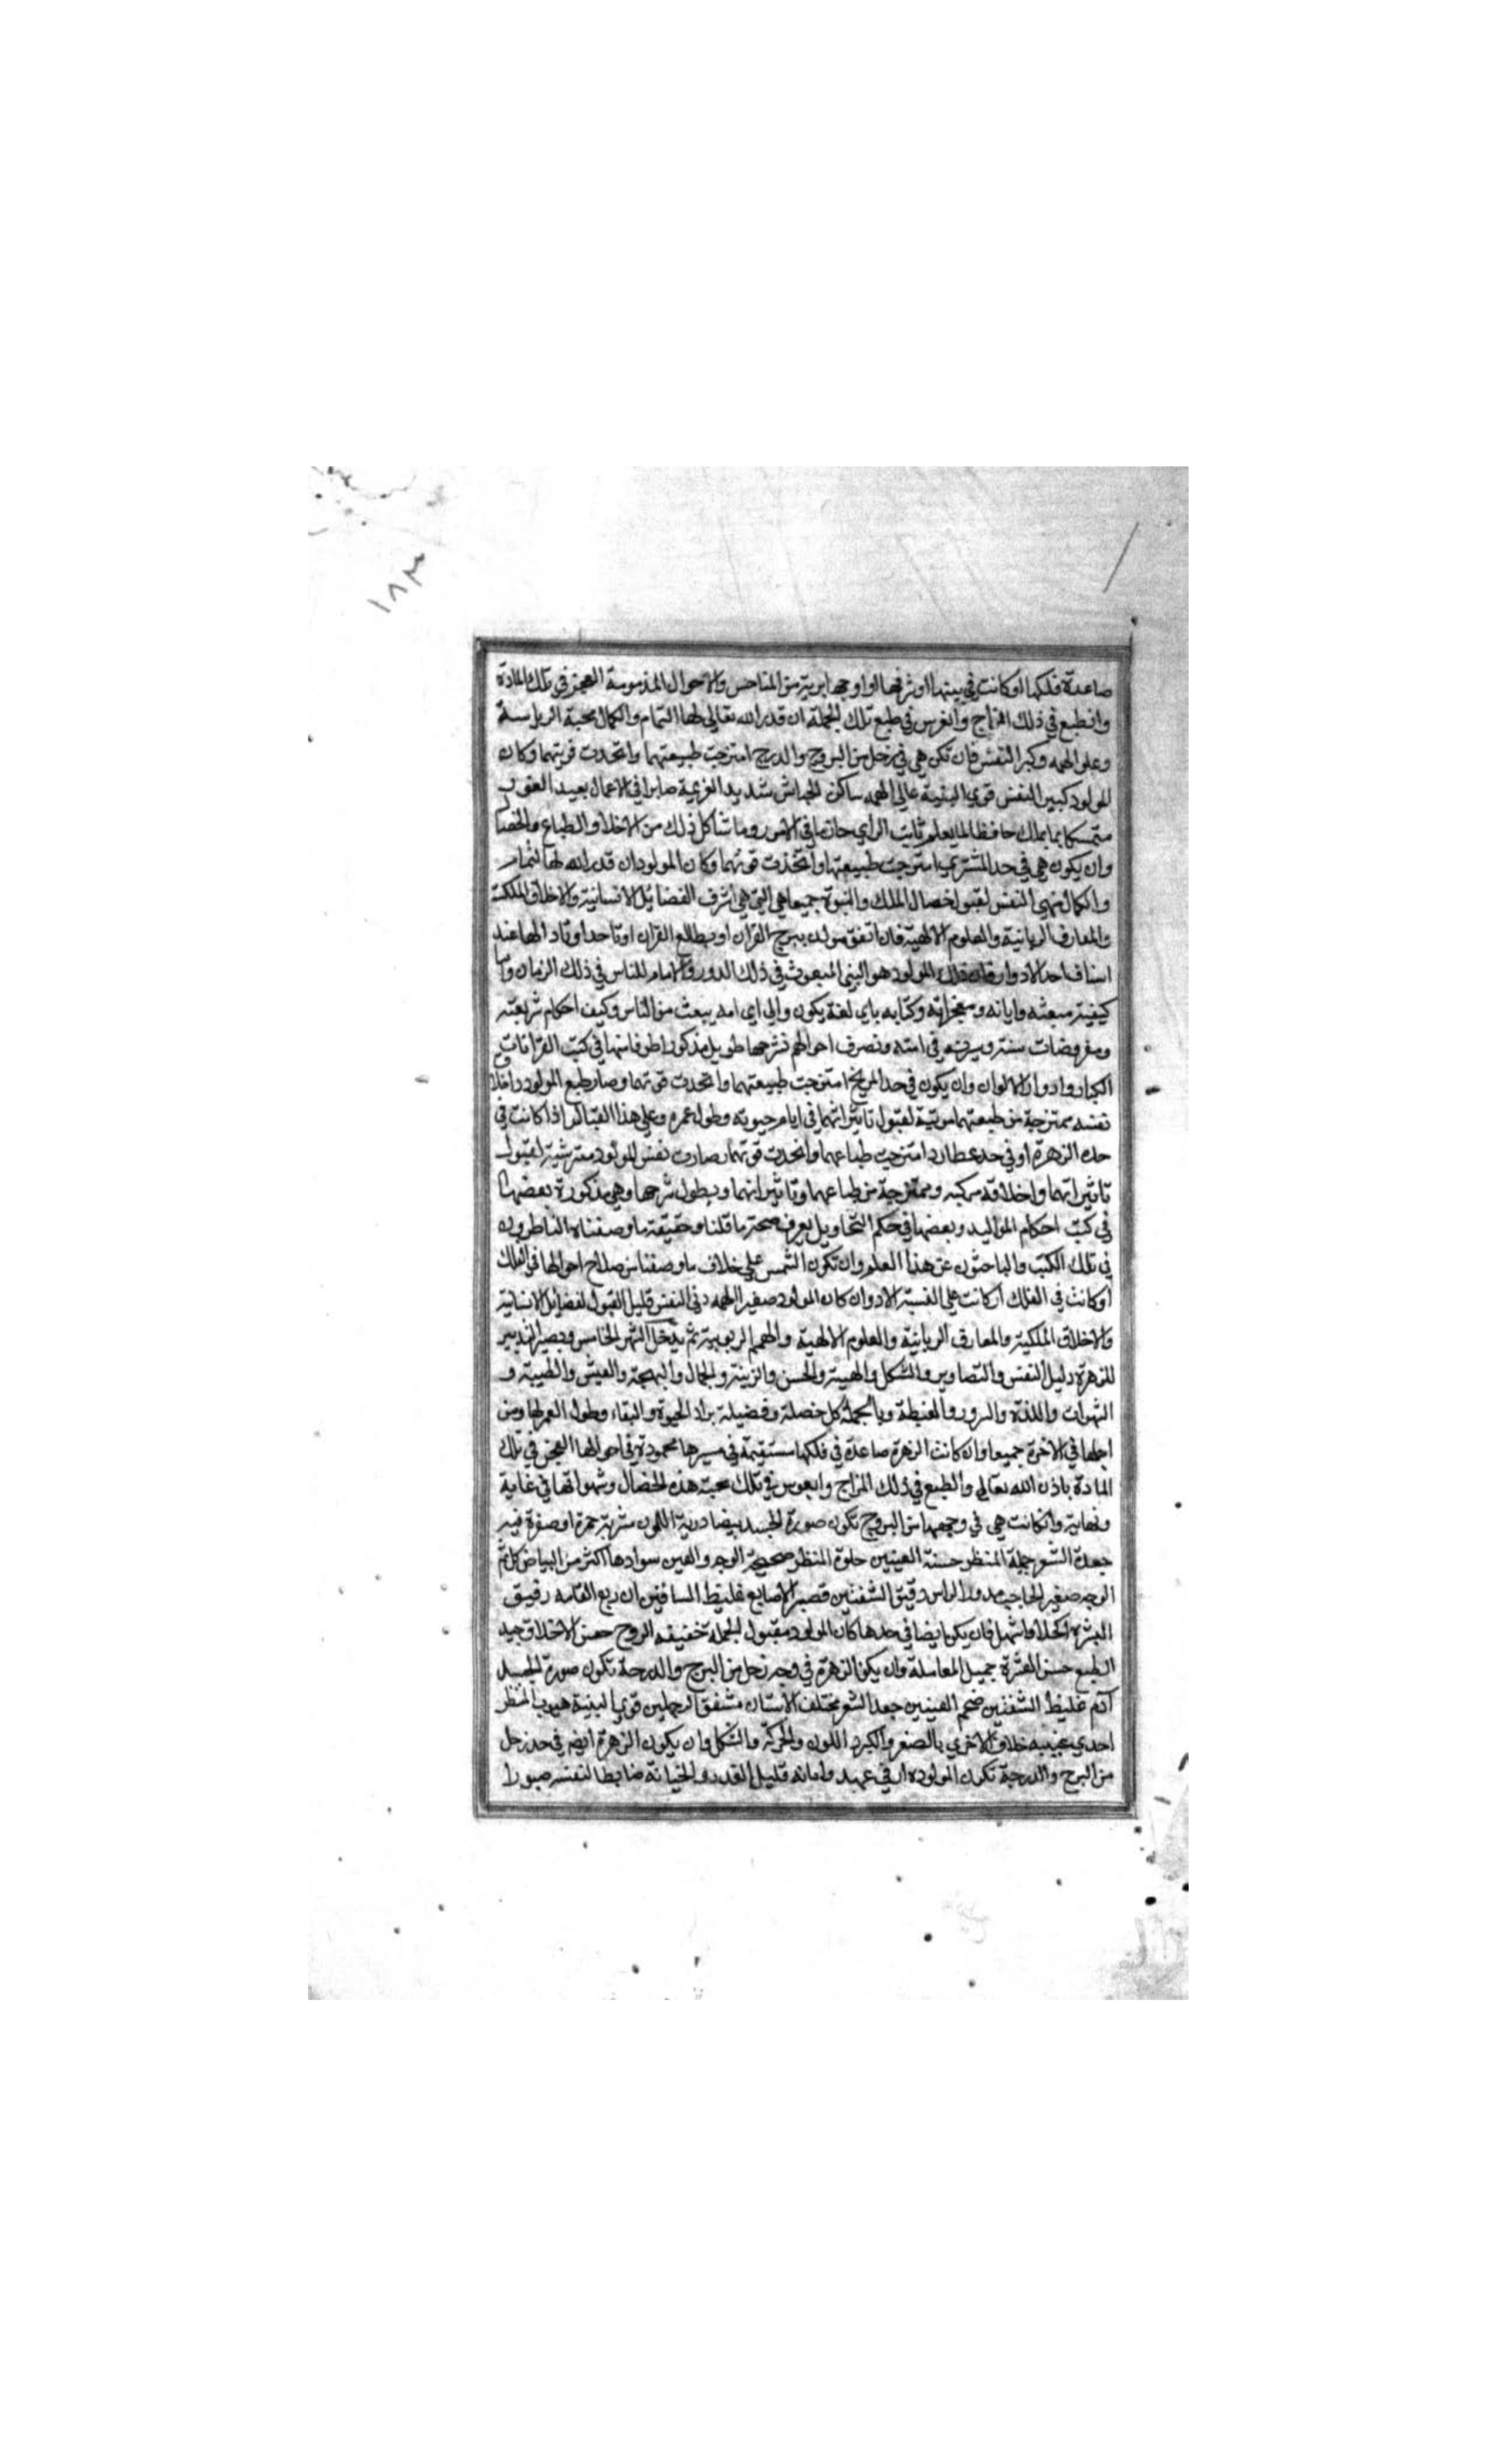 ١٨٣
صاعدة فلكها او كانت في بيتها او شرفها او اوجها بريئة من المناحس والاحوال المذمومة العجز في تلك المادة
وانطبع في ذلك المزاج وانغرس في طبع تلك الجملة ان قدر الله تعالى لها التمام والكمال محبة الرياسة
وعلو الهمه وكبر النفس فان تكن هي في زحل من البروج والدرج امتزجت طبيعتهما واتحدت قوتهما وكان
المولود كبير النفس قوي البنية عالي الهمه ساكن الجاش شديد العزيمة صابرا في الاعمال بعيد الغور
متمسكا بما يملك حافظا لما يعلم ثابت الراي حازما في الامور وما شاكل ذلك من الاخلاق والطباع والخصا
وان يكون هي في حد المشتري امتزجت طبيعتها واتخذت قوتهما وكان المولود ان قدر الله لها التمام
والكمال تهي النفس لقبول خصال الملك والنبوة جميعا هي التي هي اشرف الفضائل الانسانية والاخلاق الملكية
والمعارف الربانية والعلوم الالهية فان اتفق مولده ببرج القران او بطالع القران او تاحد اوتادها عند
استاف احد الادوار فان ذلك المولود هو النبي المبعوث في ذلك الدور والامام للناس في ذلك الزمان واما
كيفية مبعثه واياته ومعجزاته وكتابه باي لغة يكون والى اي امه يبعث من الناس وكيف احكام شريعته
ومفروضات سنته وسيرته في امته وتصرف احوالهم فشرحها طويل مذكور اطرفا منها في كتب القرانات
الكبار وادوار الالوان وان يكون في حد المريخ امتزجت طبيعتهما واتحدت قوتهما وصار طبع المولود واخلاق
نفسه ممتزجة من طبعتهما لقبول تاثيراتهما في ايام حيوته وطول عمره وعلى هذا القياس اذا كانت في
حد الزهرة او في حد عطارد امتزجت طباعهما واتحدت قوتهما وصارت نفس المولود لقبول
تاثيراتهما واخلاقه مركبه وممتزجة من طباعهما وتاثيراتهما ويطول شرحها وهي مذكورة بعضها
في كتب احكام المواليد وبعضها في حكم التحاويل يعرف صحة ما قلنا وحقيقة ما وصفناه الناظرون
في تلك الكتب والباحثون عن هذا العلم وان تكون الشمس علي خلاف ما وصفنا من صلاح احوالها في الفلك
او كانت في الفلك علي الادوان كان المولود صغير الهمه دني النفس قليل القبول لفضايل الانسانية
والاخلاق الملكية والمعارف الربانية والعلوم الالهية والهمم الربوبية ثم يدخل الشهر الخامس ويصير التدبير
للزهرة دليل النفس والتصاوير والشكل والهيئة والحسن والزينة والجمال والبهجة والعيش والطيبة و
الشهوات واللذة والسرور والغبطة وبالجملة كل خصلة وفضيلة يراد الحيوة والبقاء وطول العمر لها ومن
اجلها في الاخرة جميعا وان كانت الزهرة صاعدة في فلكها مستقيمة في سيرها محمودة في احوالها العجز في تلك
المادة باذن الله تعالى والطبع في ذلك المزاج في تلك محبة هذه الخصال وشهواتها في غاية
ونهاية وان كانت هي في وجهها من البروج تكون صورة الجسد بيضا درية اللون مشربة حمرة او صفرة فيه
جعدة الشعر جميلة المنظر حسنة العينين حلوة المنظر صحيحة الوجه والعين سوادها اكثر من البياض
الوجه صغير الحاجب مدور الراس دقيق الشفتين قصير الاصابع غليظ الساقين ربع القامه رقيق
البشرة اكحل او اشهل فان يكونا ايضا في حدها كان المولود مقبول الجملة خفيفه الروح حسن الاخلاق جيد
الطبع حسن العشرة جميل المعاملة وان يكن الزهرة في وجه زحل من البرج والدرجة تكون صورة الجسد
آدم غليظ الشفتين ضخم العينين جعد الشعر مختلف الاسنان مشقق الرجلين قوي البنية هيوب المنظر
احدي عينيه خلاف الاخري بالصغر والكبر واللون والحركة والشكل وان يكون الزهرة ايضا في حد زحل
من البرج والدرجة تكون المولود في عهد وامانه قليل الغدر والخيانة ضابطا لنفسه صبورا